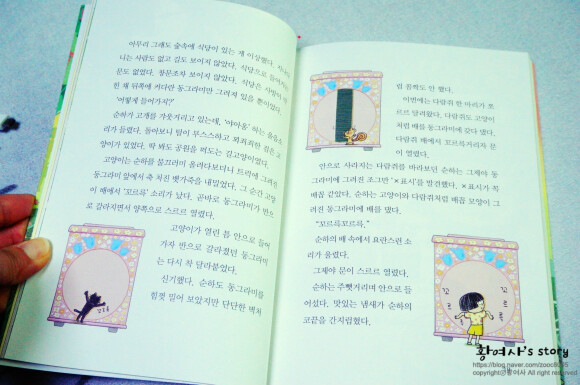 아무리 그래도 숲속에 식당이 있는 게 이상했다. 지나다
니는 사람도 없고 길도 보이지 않았다. 식당으로 들어가는
문도 없었다. 창문조차 보이지 않았다. 식당은 사방이
흰 채 뒤쪽에 커다란 동그라미만 그려져 있을 뿐이었다.
'어떻게 들어가지?'
순하가 고개를 갸웃거리고 있는데, '야아옹' 하는 울음소
리가 들렸다. 돌아보니 털이 부스스하고 꾀죄죄한 검은 고
양이가 있었다. 딱 봐도 공원을 떠도는 길고양이였다.
고양이는 순하를 물끄러미 올려다보더니 트럭에 그려진
동그라미 앞에서 축 처진 뱃가죽을 내밀었다. 그 순간 고양
이 배에서 '꼬르륵' 소리가 났다. 곧바로 동그라미가 반으
로 갈라지면서 양쪽으로 스르르 열렸다.
고양이가 열린 틈 안으로 들어
가자 반으로 갈라졌던 동그라미
는 다시 착 달라붙었다.
신기했다. 순하도 동그라미를
힘껏 밀어 보았지만 단단한 벽처
꼬르륵
럼 꿈쩍도 안 했다.
이번에는 다람쥐 한 마리가 쪼르
르 달려왔다. 다람쥐도 고양이
처럼 배를 동그라미에 갖다 댔다.
다람쥐 배에서 꼬르륵거리자 문
이 열렸다.
안으로 사라지는 다람쥐를 바라보던 순하는 그제야 동
그라미에 그려진 조그만 '×표시'를 발견했다. ×표시가 꼭
배꼽 같았다. 순하는 고양이와 다람쥐처럼 배꼽 모양이 그
려진 동그라미에 배를 댔다.
"꼬르륵꼬르륵."
순하의 배 속에서 요란스런 소
리가 울렸다.
그제야 문이 스르르 열렸다.
순하는 주뼛거리며 안으로 들
어섰다. 맛있는 냄새가 순하의
코끝을 간지럽혔다.
황여사's story
copyright@황여사 All right reserved